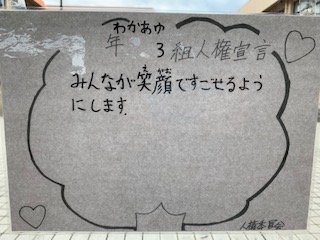 わかあゆ
年 3 組人権宣言
みんなが笑顔ですごせるよう
にします.
人権委員会